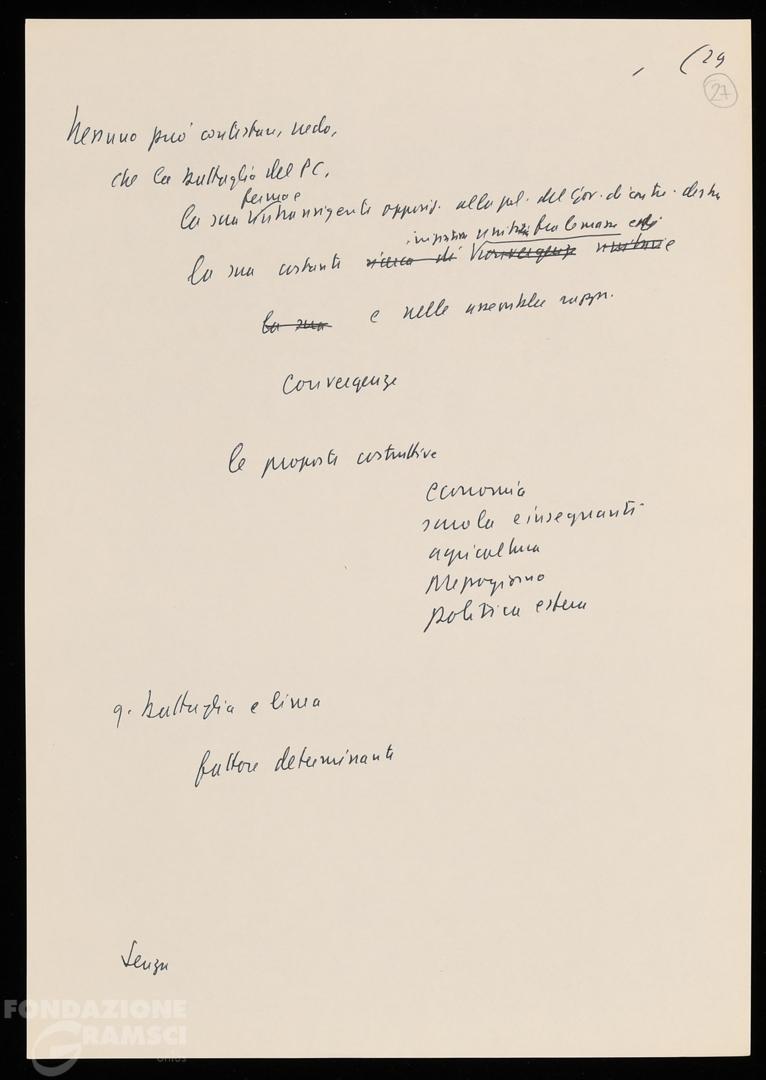 (29
27
Nessuno può contestare, credo,
che la battaglia del PC,
ferma e
la sua intransigente opposiz. alla pol. del Gov. di centro-destra
iniziativa unitaria tra le masse e
la sua costante ricerca di convergenze unitarie
la sua e nelle assemblee rappr.
Convergenze
le proposte costruttive
economia
scuola e insegnanti
agricoltura
Mezzogiorno
politica estera
q. battaglia e linea
fattore determinante
Senza
FONDAZIONE
GRAMSCI
ONLUS